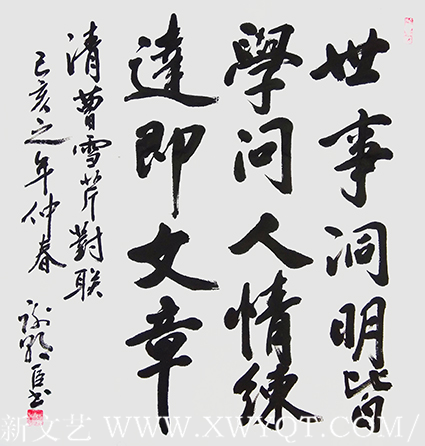 世事洞明皆
學问人情練
達即文章
清曹雪芹對联
己亥之年仲春
新文艺 WWW.XWYQT.COM